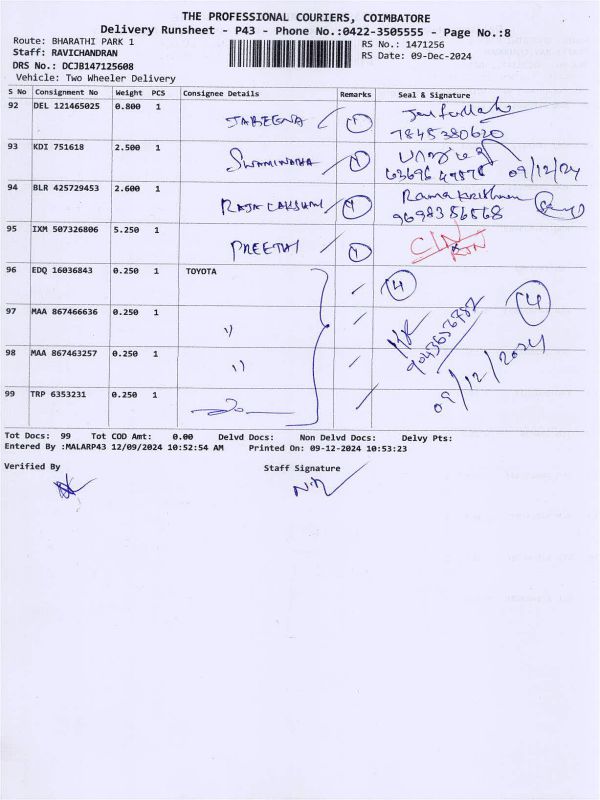 THE PROFESSIONAL COURIERS, COIMBATORE
Delivery Runsheet - P43 - Phone No.:0422-3505555 - Page No.:8
Route: BHARATHI PARK 1
RS No.: 1471256
Staff: RAVICHANDRAN
RS Date: 09-Dec-2024
DRS No.: DCJB147125608
Vehicle: Two Wheeler Delivery
S No Consignment No Weight PCS Consignee Details Remarks Seal & Signature
92 DEL 121465025 0.800 1 JABEENA 1
7845380620
93 KDI 751618 2.500 1 1 09/12/24
94 BLR 425729453 2.600 1 RAJALAKSHMI 1 Ramakrishnan
9698386568
95 IXM 507326806 5.250 1 PREETHI 1
96 EDQ 16036843 0.250 1 TOYOTA 4 4
97 MAA 867466636 0.250 1 "
98 MAA 867463257 0.250 1 " 09/12/2024
99 TRP 6353231 0.250 1
Tot Docs: 99 Tot COD Amt: 0.00 Delvd Docs: Non Delvd Docs: Delvy Pts:
Entered By :MALARP43 12/09/2024 10:52:54 AM Printed On: 09-12-2024 10:53:23
Verified By Staff Signature